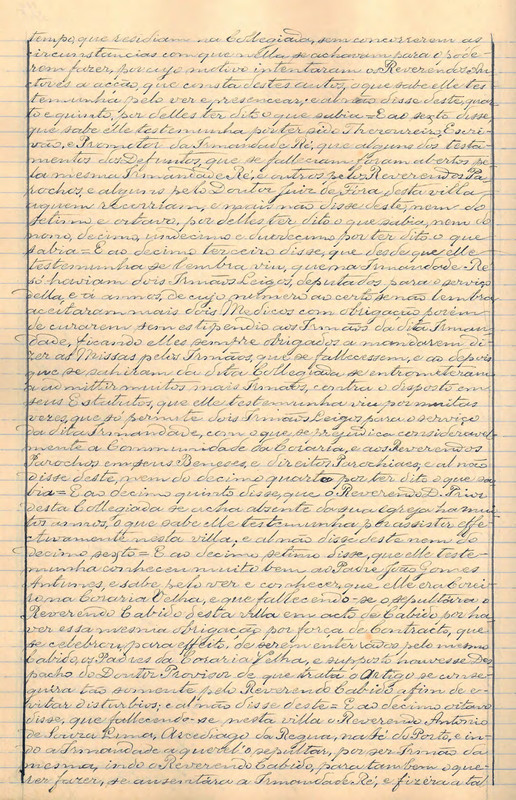 tempo, que residiam na Collegiada, sem concorrerem as
circumstancias com que nella se achavam para o póde-
rem fazer, por cujo motivo intentaram os Reverendos Au-
ctores a acção, que consta destes autos, o que sabe elle tes-
temunha pelo ver e presencear; e al não disse deste, quar-
to e quinto, por delles ter dito o que sabia = E ao sexto disse,
que sabe elle testemunha por ter sido Thezoureiro, Escri-
vão, e Promotor da Irmandade Ré, que alguns dos testa-
mentos dos Defuntos, que se falleciam foram abertos pe-
la mesma Irmandade Ré, e outros pelos Reverendos Pa-
rochos, e alguns pelo Doutor Juiz de Fóra desta villa
a quem recorriam, e mais não disse deste, nem do
setimo e oitavo, por delles ter dito o que sabia, nem do
nono, decimo, undecimo e duodecimo por ter dito o que
sabia = E ao decimo terceiro disse, que desde que elle
testemunha se lembra viu, que na Irmandade Ré
só haviam dois Irmãos Leigos, deputados para o serviço
della, e a annos, de cujo numero ao certo se não lembra
aceitaram mais dois Medicos com obrigação porém
de curarem sem estipendio aos Irmãos da dita Irman-
dade, ficando elles sempre obrigados a mandarem di-
zer as Missas pelos Irmãos, que se fallecessem, e ao depois
que se sahiram da dita Collegiada se entrometeram
a admittir muitos mais Irmãos, contra o disposto em
seus Estatutos, que elle testemunha viu por muitas
vezes, que só permitte dois Irmãos Leigos para o serviço
da dita Irmandade, com o que se prejudica consideravel-
mente a Communidade da Coraria, e aos Reverendos
Parochos em seus Beneces, e direitos Parochiaes, e al não
disse deste, nem do decimo quarto por ter dito o que sa-
bia = E ao decimo quinto disse, que o Reverendo D. Prior
desta Collegiada se acha absente da sua Egreja ha mui-
tos annos, o que sabe elle testemunha por assistir effe-
ctivamente nesta villa, e al não disse deste nem do
decimo sexto = E ao decimo setimo disse, que elle teste-
munha conheceu muito bem ao Padre João Gomes
Antunes, e sabe pelo ver e conhecer, que elle era Corei-
ro na Coraria Velha, e que fallecendo-se o sepultára o
Reverendo Cabido desta villa em acto de Cabido por ha-
ver essa mesma obrigação por força de Contracto, que
se celebrou, para effeito, de serem enterrados pelo mesmo
Cabido, os Padres da Coraria Velha, e supposto houvesse Des-
pacho do Doutor Provisor de que trata o Artigo se conse-
guira tão somente pelo Reverendo Cabido a fim de e-
vitar disturbios; e al não disse deste = E ao decimo oitavo
disse, que fallecendo-se nesta villa o Reverendo Antonio
de Souza Lima, Arcediago da Regua, na Sé do Porto, e in-
do a Irmandade a querel-o sepultar, por ser Irmão da
mesma, indo o Reverendo Cabido, para tambem o que-
rer fazer, se ausentára a Irmandade Ré, e fizera a tal